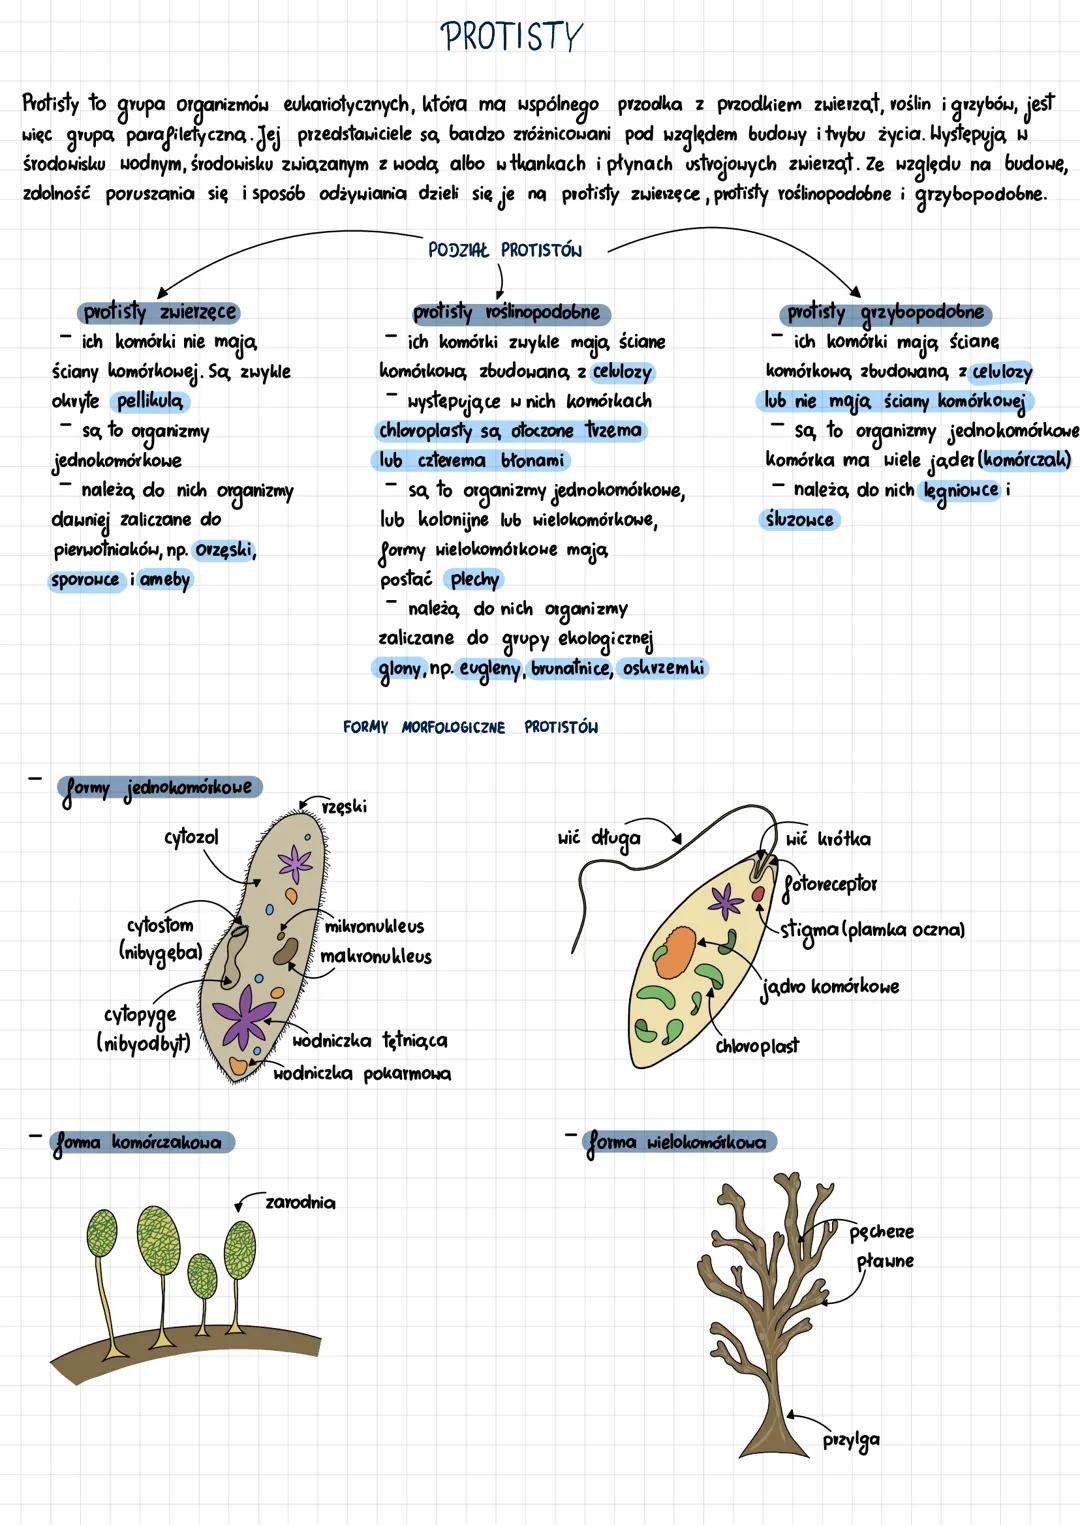 PROTISTY
Protisty to grupa organizmów eukariotycznych, która ma wspólnego przodka z przodkiem zwierząt, roślin i grzybów, jest
więc grupą parafiletyczną. Jej przedstawiciele są bardzo zróżnicowani pod względem budowy i trybu życia. Występują w
środowisku wodnym, środowisku związanym z wodą albo w tkankach i płynach ustrojowych zwierząt. Ze względu na budowę,
zdolność poruszania się i sposób odżywiania dzieli się je na protisty zwierzęce, protisty roślinopodobne i grzybopodobne.
PODZIAŁ PROTISTÓW
protisty zwierzęce
- ich komórki nie mają
ściany komórkowej. Są zwykle
okryte pellikulą
- są to organizmy
jednokomórkowe
- należą do nich organizmy
dawniej zaliczane do
pierwotniaków, np. orzęski,
sporowce i ameby
protisty roślinopodobne
- ich komórki zwykle mają ściane
komórkową zbudowaną z celulozy
- występujące w nich komórkach
chloroplasty są otoczone trzema
lub czterema błonami
- są to organizmy jednokomórkowe,
lub kolonijne lub wielokomórkowe,
formy wielokomórkowe mają
postać plechy
- należą do nich organizmy
zaliczane do grupy ekologicznej
glony, np. eugleny, brunatnice, oskrzemki
protisty grzybopodobne
- ich komórki mają ścianę
komórkową zbudowaną z celulozy
lub nie mają ściany komórkowej
- są to organizmy jednokomórkowe
komórka ma wiele jąder (komórczak)
- należą do nich lęgniowce i
śluzowce
FORMY MORFOLOGICZNE PROTISTÓW
- formy jednokomórkowe
rzęski
cytozol
cytostom
(nibygęba)
mikronukleus
makronukleus
cytopyge
(nibyodbyt)
wodniczka tętniąca
wodniczka pokarmowa
wić długa
wić krótka
fotoreceptor
stigma (plamka oczna)
jądro komórkowe
chloroplast
- forma komórczakowa
zarodnia
- forma wielokomórkowa
pęcherze
pławne
przylga